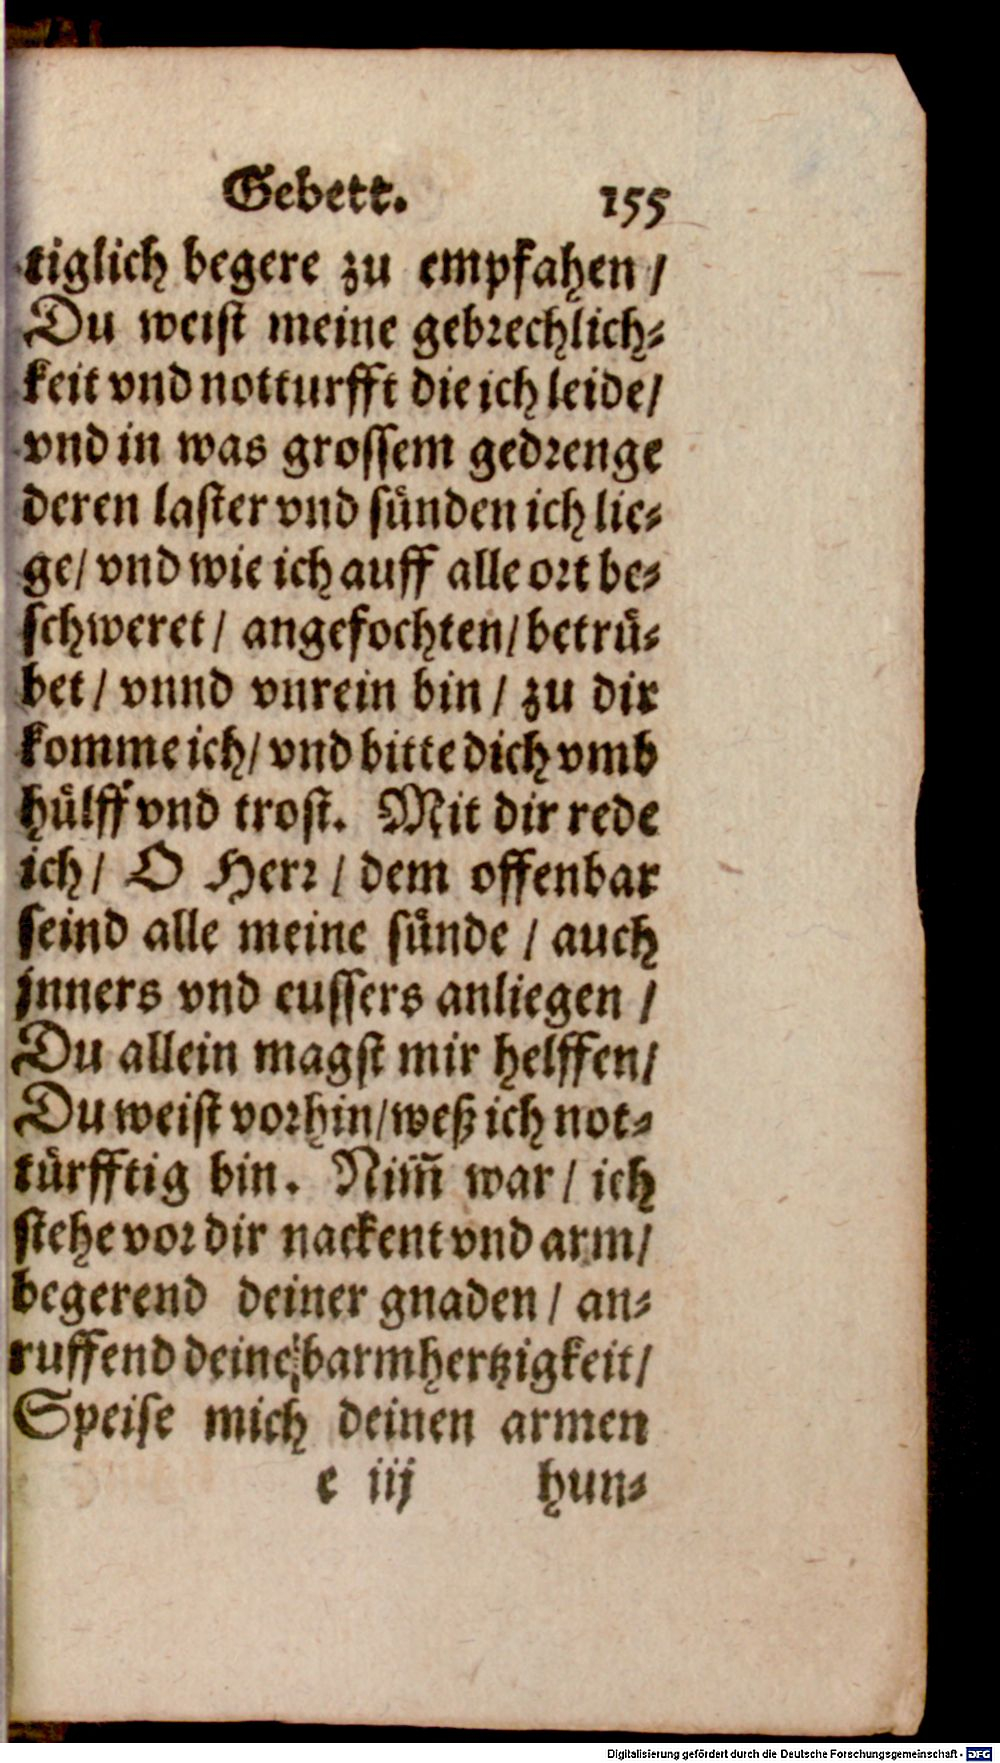 Gebett. 155
tiglich begere zu empfahen /
Du weist meine gebrechlich-
keit vnd notturfft die ich leide /
vnd in was grossem gedrenge
deren laster vnd sünden ich lie-
ge / vnd wie ich auff alle ort be-
schweret / angefochten / betrü-
bet / vnnd vnrein bin / zu dir
komme ich / vnd bitte dich vmb
hülff vnd trost. Mit dir rede
ich / O Herr / dem offenbar
seind alle meine sünde / auch
jnners vnd eussers anliegen /
Du allein magst mir helffen /
Du weist vorhin / weß ich not-
türfftig bin. Nim̃ war / ich
stehe vor dir nackent vnd arm /
begerend deiner gnaden / an-
ruffend deine barmhertzigkeit /
Speise mich deinen armen
e iij hun-
Digitalisierung gefördert durch die Deutsche Forschungsgemeinschaft - DFG